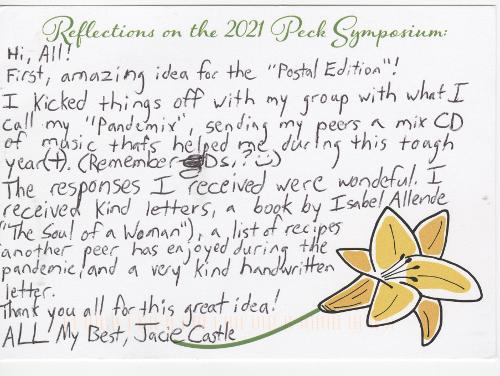 Reflections on the 2021 Peck Symposium:
Hi, All!
First, amazing idea for the "Postal Edition"!
I kicked things off with my group with what I
call my "Pandemix", sending my peers a mix CD
of music that's helped me during this tough
year(+). (Remember CDs,? :))
The responses I received were wondeful. I
received kind letters, a book by Isabel Allende
("The Soul of a Woman"), a list of recipes
another peer has enjoyed during the
pandemic, and a very kind handwritten
letter.
Thank you all for this great idea!
ALL My Best, Jacie Castle